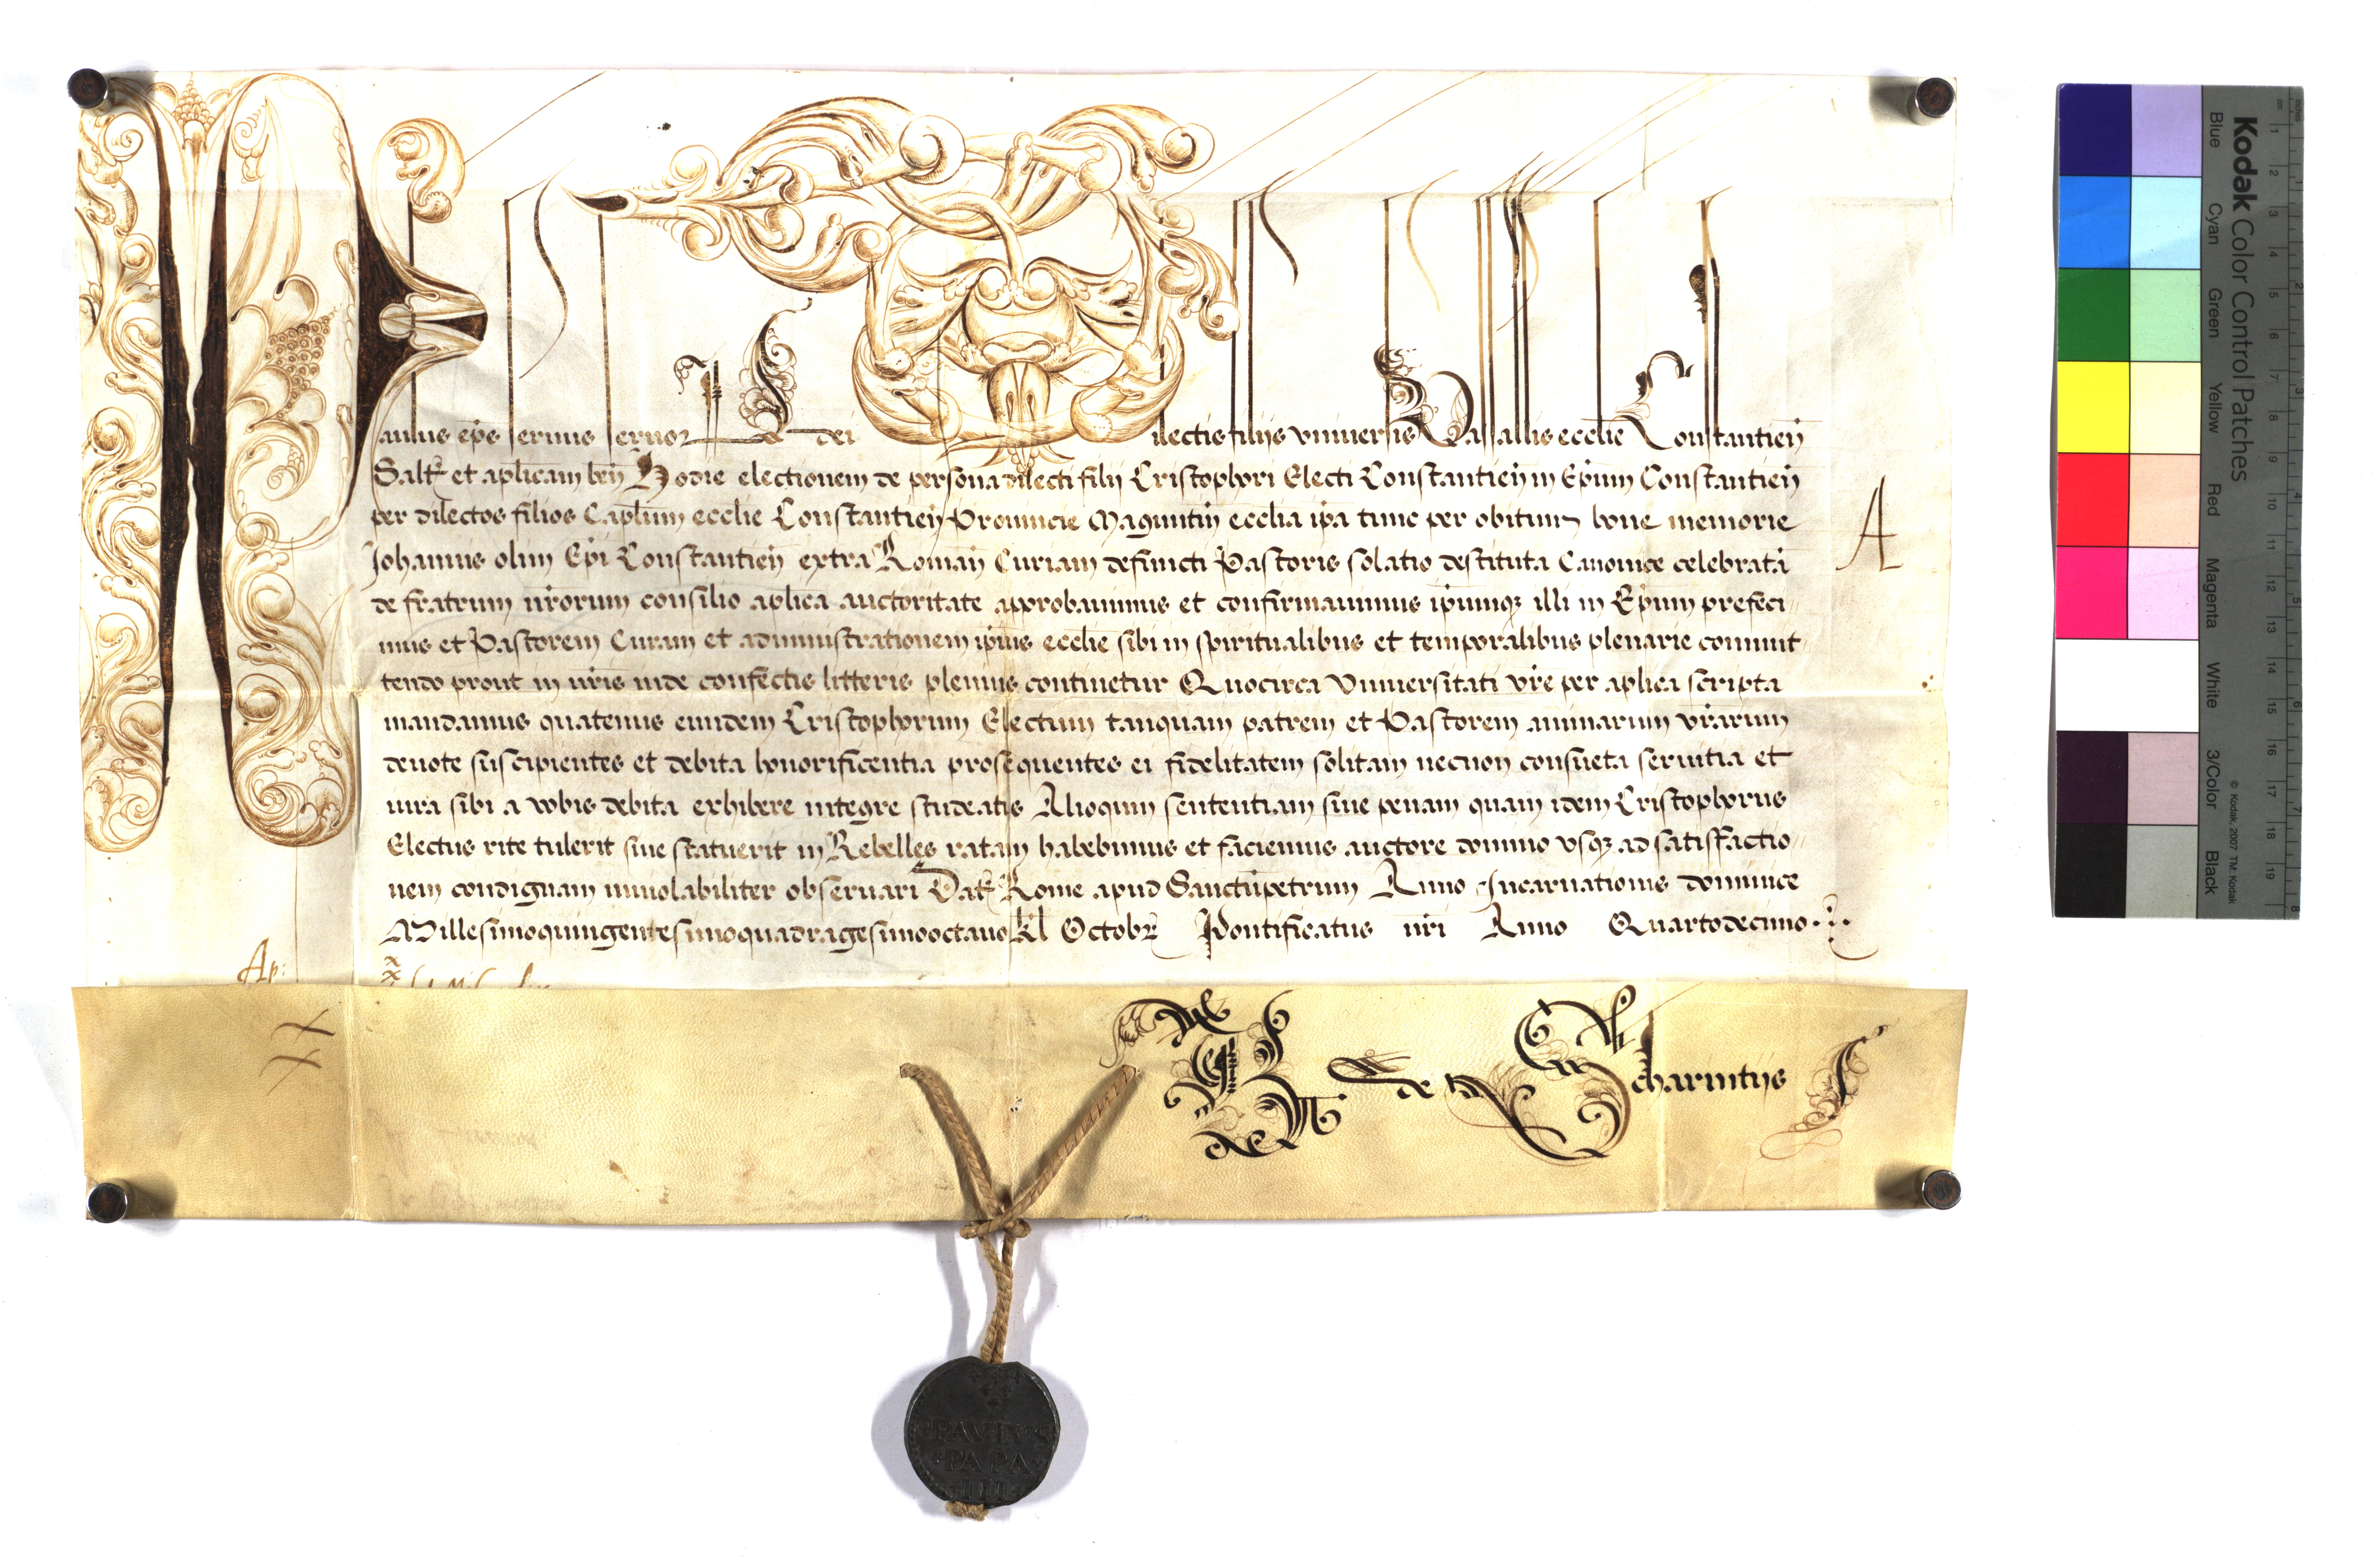 Paulus ep̄s servus servoꝝ dei Dilectis filijs vniuersis Vasallis eccl̄ie Constantien̄
Salt̄ et apl̄icam ben̄ Hodie electionem de persona dilecti filij Cristophori Electi Constantien̄ in Ep̄um Constantien̄
per dilectos filios Capl̄um eccl̄ie Constantien̄ Prouincie Maguntin̄ eccl̄ia ip̄a tunc per obitum bone memorie
Johannis olim Ep̄i Constantien̄ extra Roman̄ Curiam defuncti Pastoris solatio destituta Canonice celebratā
de fratrum nr̄orum consilio apl̄ica auctoritate approbauimus et confirmauimus ip̄umqꝫ illi in Ep̄um prefeci//
mus et Pastorem Curam et administrationem ip̄ius eccl̄ie sibi in spiritualibus et temporalibus plenarie commit
tendo prout in nr̄is inde confectis litteris plenius continetur Quocirca Vniuersitati vr̄e per apl̄ica scripta
mandamus quatenus eundem Cristophorum Electum tanquam patrem et Pastorem animarum vr̄arum
deuote suscipientes et debita honorificentia prosequentes ei fidelitatem solitam necnon consueta seruitia et
iura sibi a vobis debita exhibere integre studeatis Alioquin sententiam siue penam quam idem Cristophorus
Electus rite tulerit siue statuerit in Rebelles ratam habebimus et faciemus auctore domino vsqꝫ ad satisfactio//
nem condignam inuiolabiliter obseruari Dat̄ Rome apud Sanctūpetrum Anno Incarnationis dominice
Millesimoquingentesimoquadragesimooctauo kl̄ Octobr̄ Pontificatus nr̄i Anno Quartodecimo
A
Ap:
XX
de Scharintijs
PAVLVS
PAPA
III
Kodak Color Control Patches
Blue Cyan Green Yellow Red Magenta White 3/Color Black
© Kodak, 2007 TM: Kodak
cm 1 2 3 4 5 6 7 8 9 10 11 12 13 14 15 16 17 18 19
inches 1 2 3 4 5 6 7 8